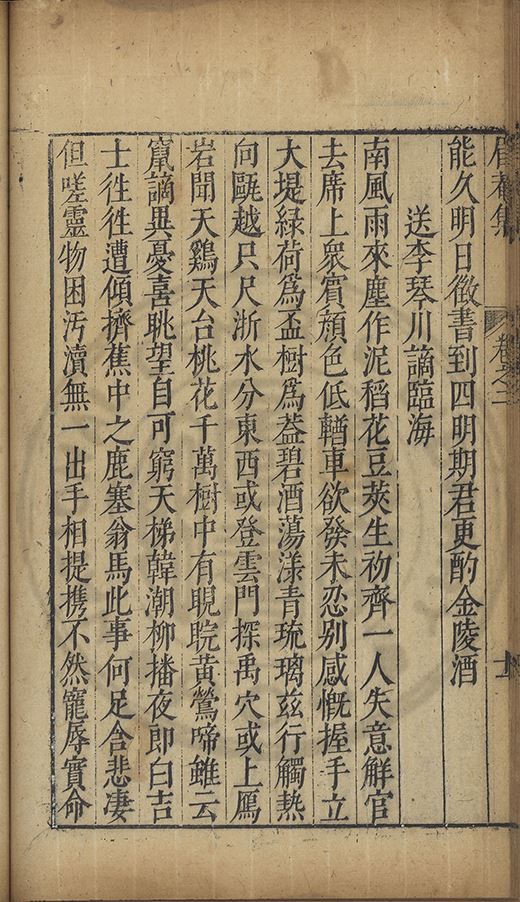 能久明日徵書到四明期君更酌金陵酒
送李琴川謫臨海
南風雨來塵作泥稻花豆莢生初齊一人失意解官
去席上衆賓顔色低輶車欲發未忍别感慨握手立
大堤緑荷爲盃樹爲葢碧酒蕩漾青琉璃兹行觸熱
向甌越只尺浙水分東西或登雲門探禹穴或上鴈
岩聞天鷄天台桃花千萬樹中有睍睆黄鶯啼雖云
竄謫異憂喜眺望自可窮天梯韓潮柳播夜即白吉
士徃徃遭傾擠蕉中之鹿塞翁馬此事何足含悲凄
但嗟靈物困汚瀆無一出手相提携不然寵辱實命